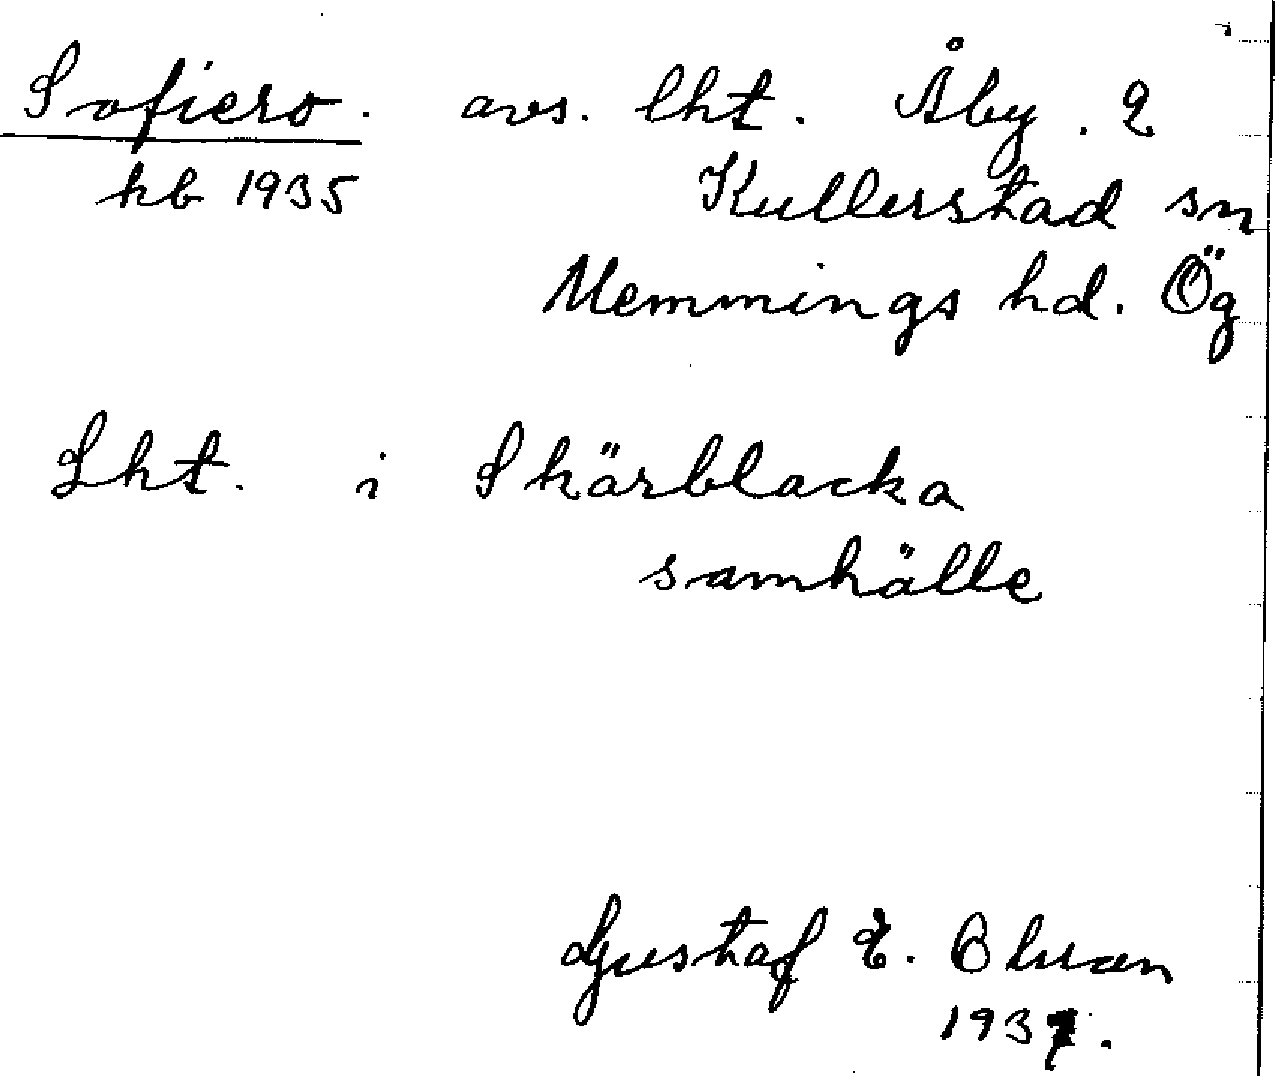 Sofiero. avs. lht. Åby. 2
kb 1935 Kullerstad sn
Memmings hd. Ög
Lht. i Skärblacka
samhälle
Gustaf E. Bluran
1937.